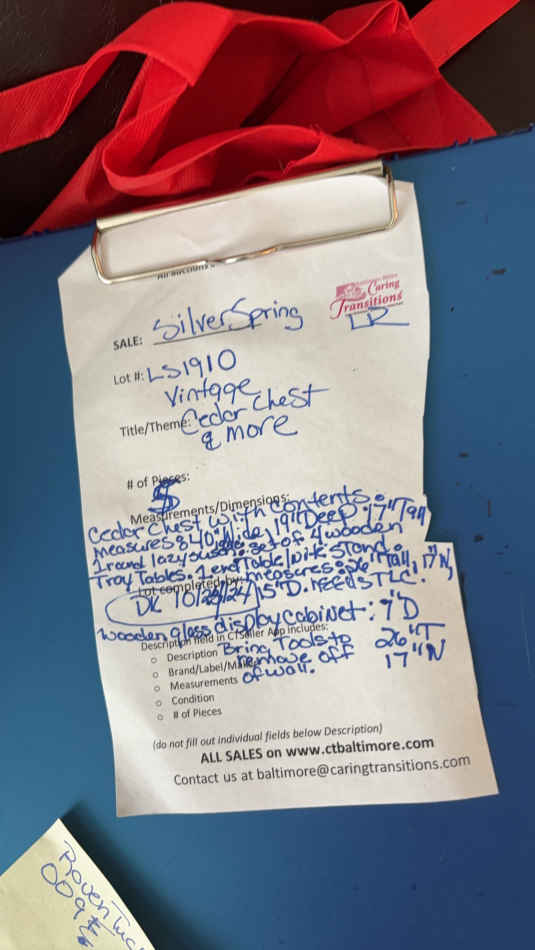 Caring
Transitions
LR
SALE: Silver Spring
Lot #: LS1910
Vintage
Title/Theme: Cedar Chest
& more
# of Pieces:
Measurements/Dimensions:
Cedar Chest with contents.
measures: 40" wide, 19" Deep 17" Tall
1 round lazy susan. set of 4 wooden
Tray Tables. 1 end Table/nite stand.
Lot completed by: measures: 26" Tall, 17" W,
DK 10/28/24 15" D. needs TLC.
wooden glass display cabinet: 9" D
Description field in CTSeller App includes:
26" T
Description Bring Tools to
17" W
Brand/Label/Maker remove off
Measurements of wall.
Condition
# of Pieces
(do not fill out individual fields below Description)
ALL SALES on www.ctbaltimore.com
Contact us at baltimore@caringtransitions.com
009